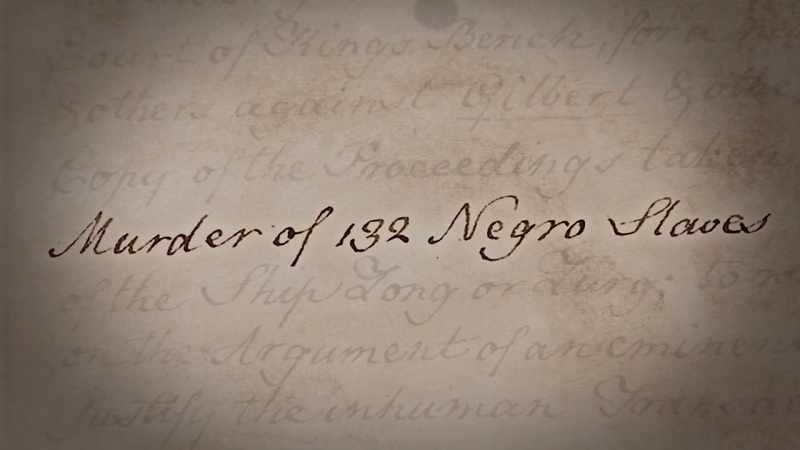 Court of Kings Bench, for a
& others against Gilbert & othe
Copy of the Proceedings taken
Murder of 132 Negro Slaves
of the Ship Zong or Zurg; to
on the Argument of an eminen
Justify the inhuman Transac